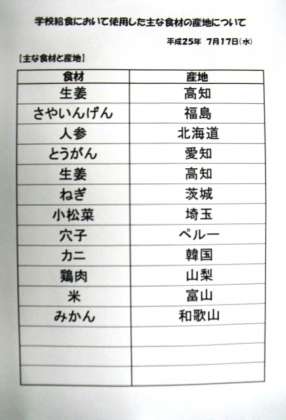 学校給食において使用した主な食材の産地について
平成25年 7月17日(水)
【主な食材と産地】
食材 産地
生姜 高知
さやいんげん 福島
人参 北海道
とうがん 愛知
生姜 高知
ねぎ 茨城
小松菜 埼玉
穴子 ペルー
カニ 韓国
鶏肉 山梨
米 富山
みかん 和歌山